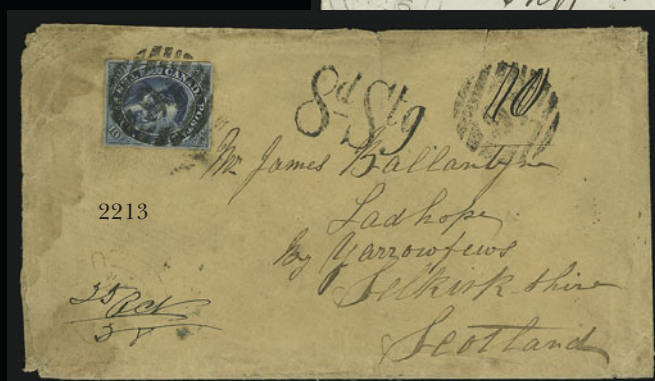 CANADA POSTAGE
10
8d Stg
10
Mr James Ballantyne
Ladhope
by Yarrowfews
Selkirkshire
Scotland
2213
25 Oct